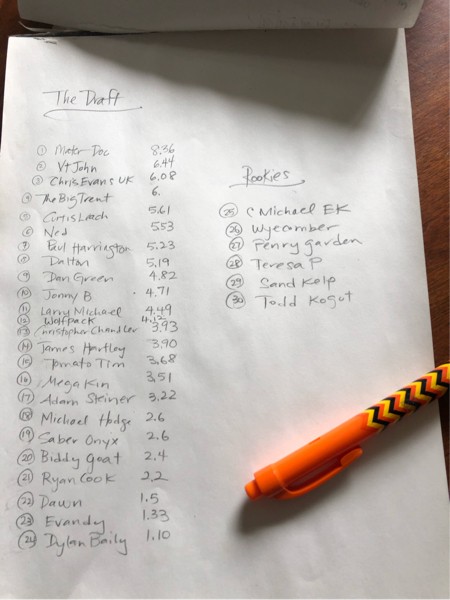 The Draft
① Mister Doc 8.36
② Vt John 6.44
③ Chris Evans UK 6.08
④ The Big Trent 6.
⑤ Curtis Leach 5.61
⑥ Ned 5.53
⑦ Paul Harrington 5.23
⑧ Dalton 5.19
⑨ Dan Green 4.82
⑩ Jonny B 4.71
⑪ Larry Michael 4.49
⑫ Wolfpack 4.12
⑬ Christopher Chandler 3.93
⑭ James Hartley 3.90
⑮ Tomato Tim 3.68
⑯ Mega Kin 3.51
⑰ Adam Steiner 3.22
⑱ Michael Hodge 2.6
⑲ Saber Onyx 2.6
⑳ Biddy Goat 2.4
㉑ Ryan Cook 2.2
㉒ Dawn 1.5
㉓ Evandy 1.33
㉔ Dylan Baily 1.10
Rookies
㉕ C Michael EK
㉖ Wycomber
㉗ Penny garden
㉘ Teresa P
㉙ Sand Kelp
㉚ Todd Kogut